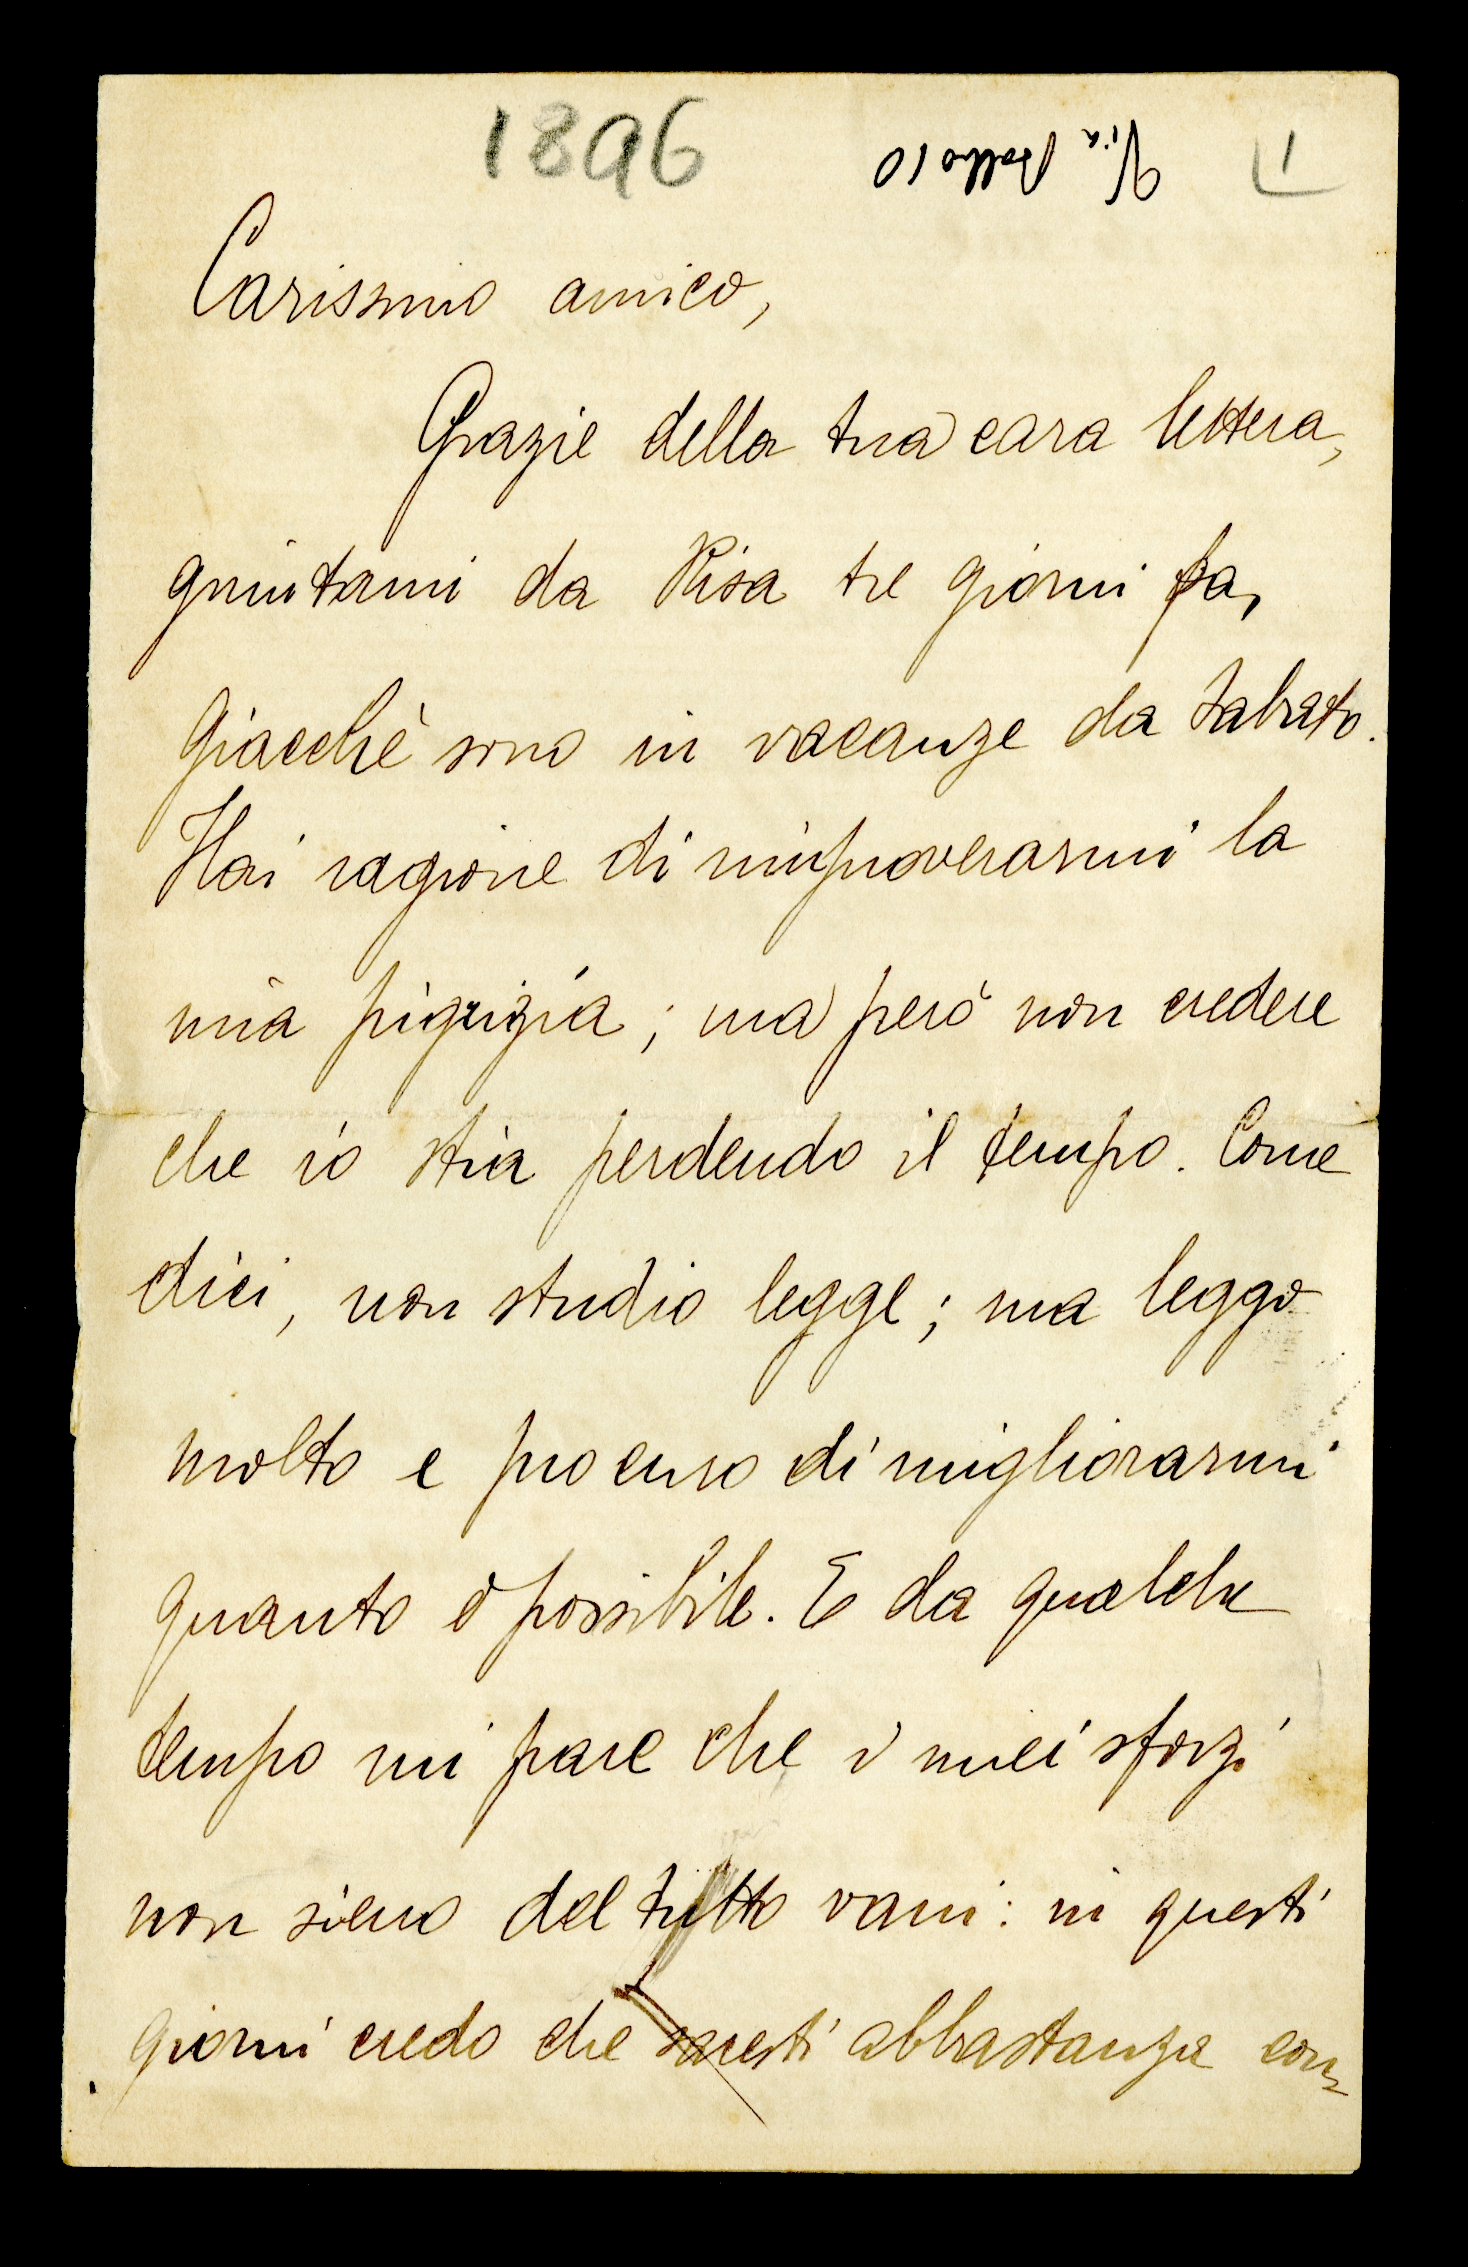 1896
Via Balbo 10
1
Carissimo amico,
Grazie della tua cara lettera,
giuntami da Pisa tre giorni fa,
giacchè sono in vacanze da sabato.
Hai ragione di rimproverarmi la
mia pigrizia; ma però non credere
che io stia perdendo il tempo. Come
dici, non studio legge; ma leggo
molto e procuro di migliorarmi
quanto è possibile. E da qualche
tempo mi pare che i miei sforzi
non sieno del tutto vani: in questi
giorni credo che saresti abbastanza con-